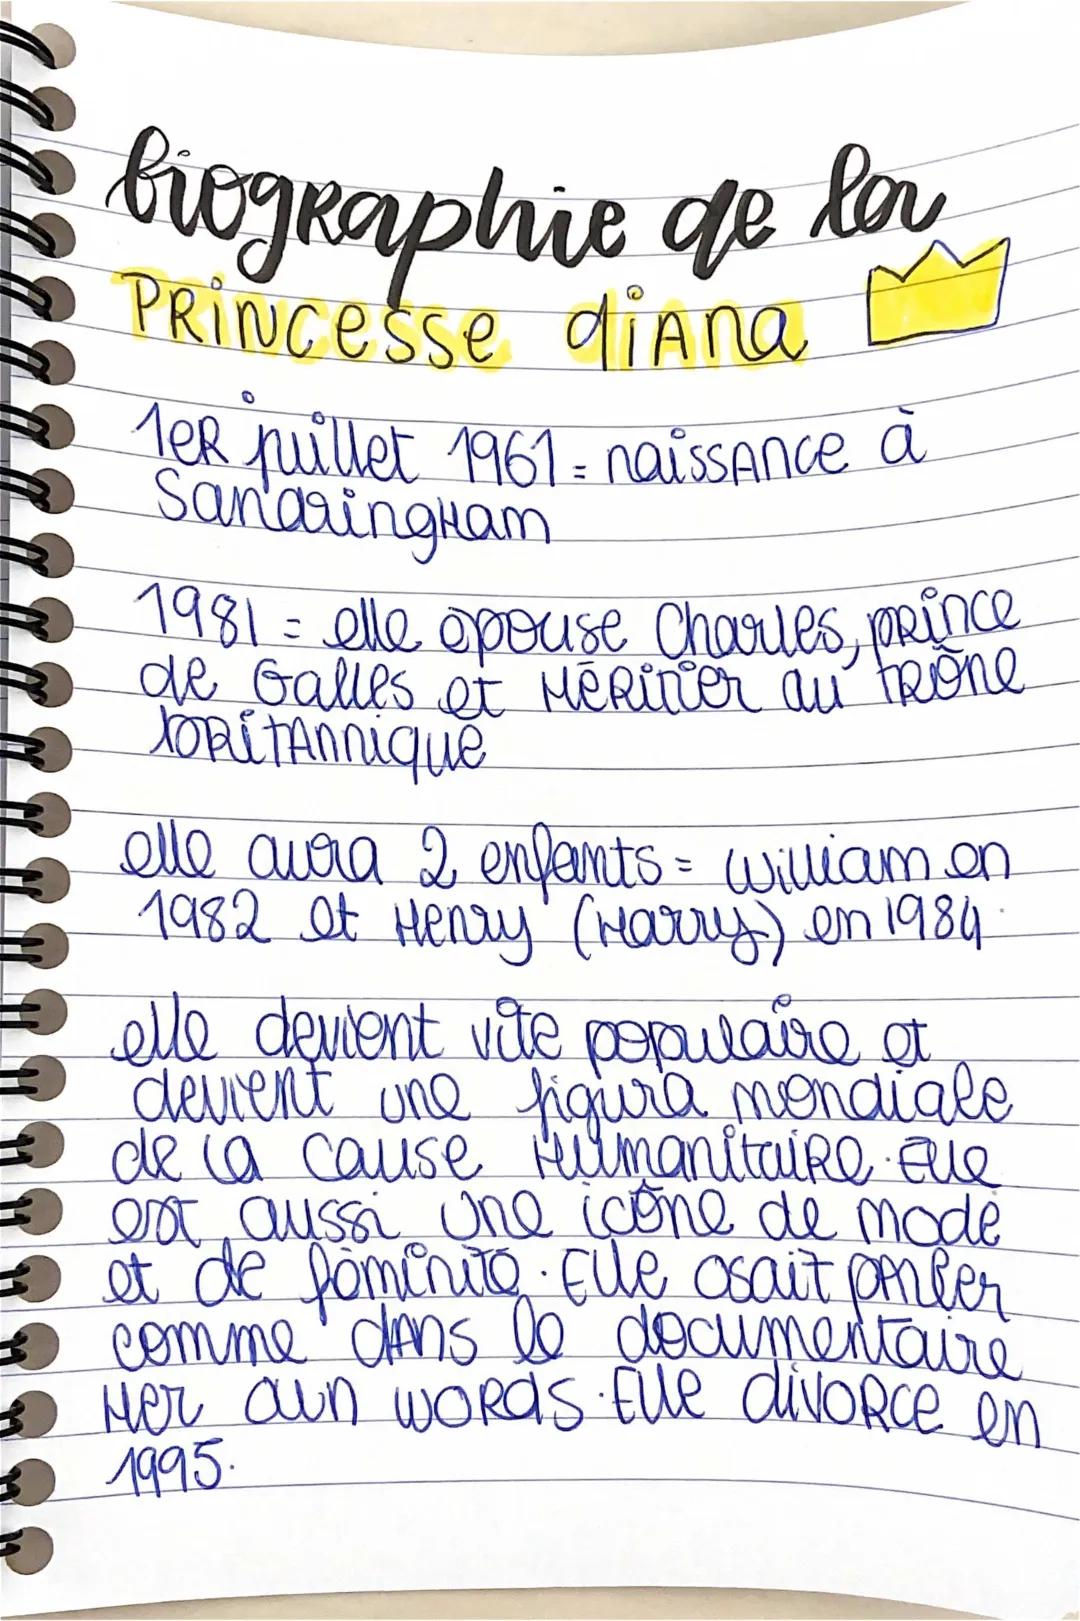 biographie de la
PRINCESSE diANA
1ER juillet 1961 = naissANce à
Sandringham
1981 = elle épouse Charles, prince
de Galles et HÉRitier au TRône
bRitANNique
elle aura 2 enfants = william en
1982 et Henry (Harry) en 1984.
elle devient vite populaire et
devient une figura mondiale
de la cause HumanitaiRe. Elle
est aussi une icône de mode
et de féminité. Elle osait pARler
comme dANs le documentaire
Her own woRds. Elle divoRce en
1995.